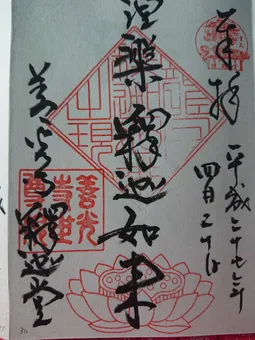 奉拝
平成二十七年
四月二十
涅槃釋迦如来
善光寺釋迦堂
善光
寺世
尊院